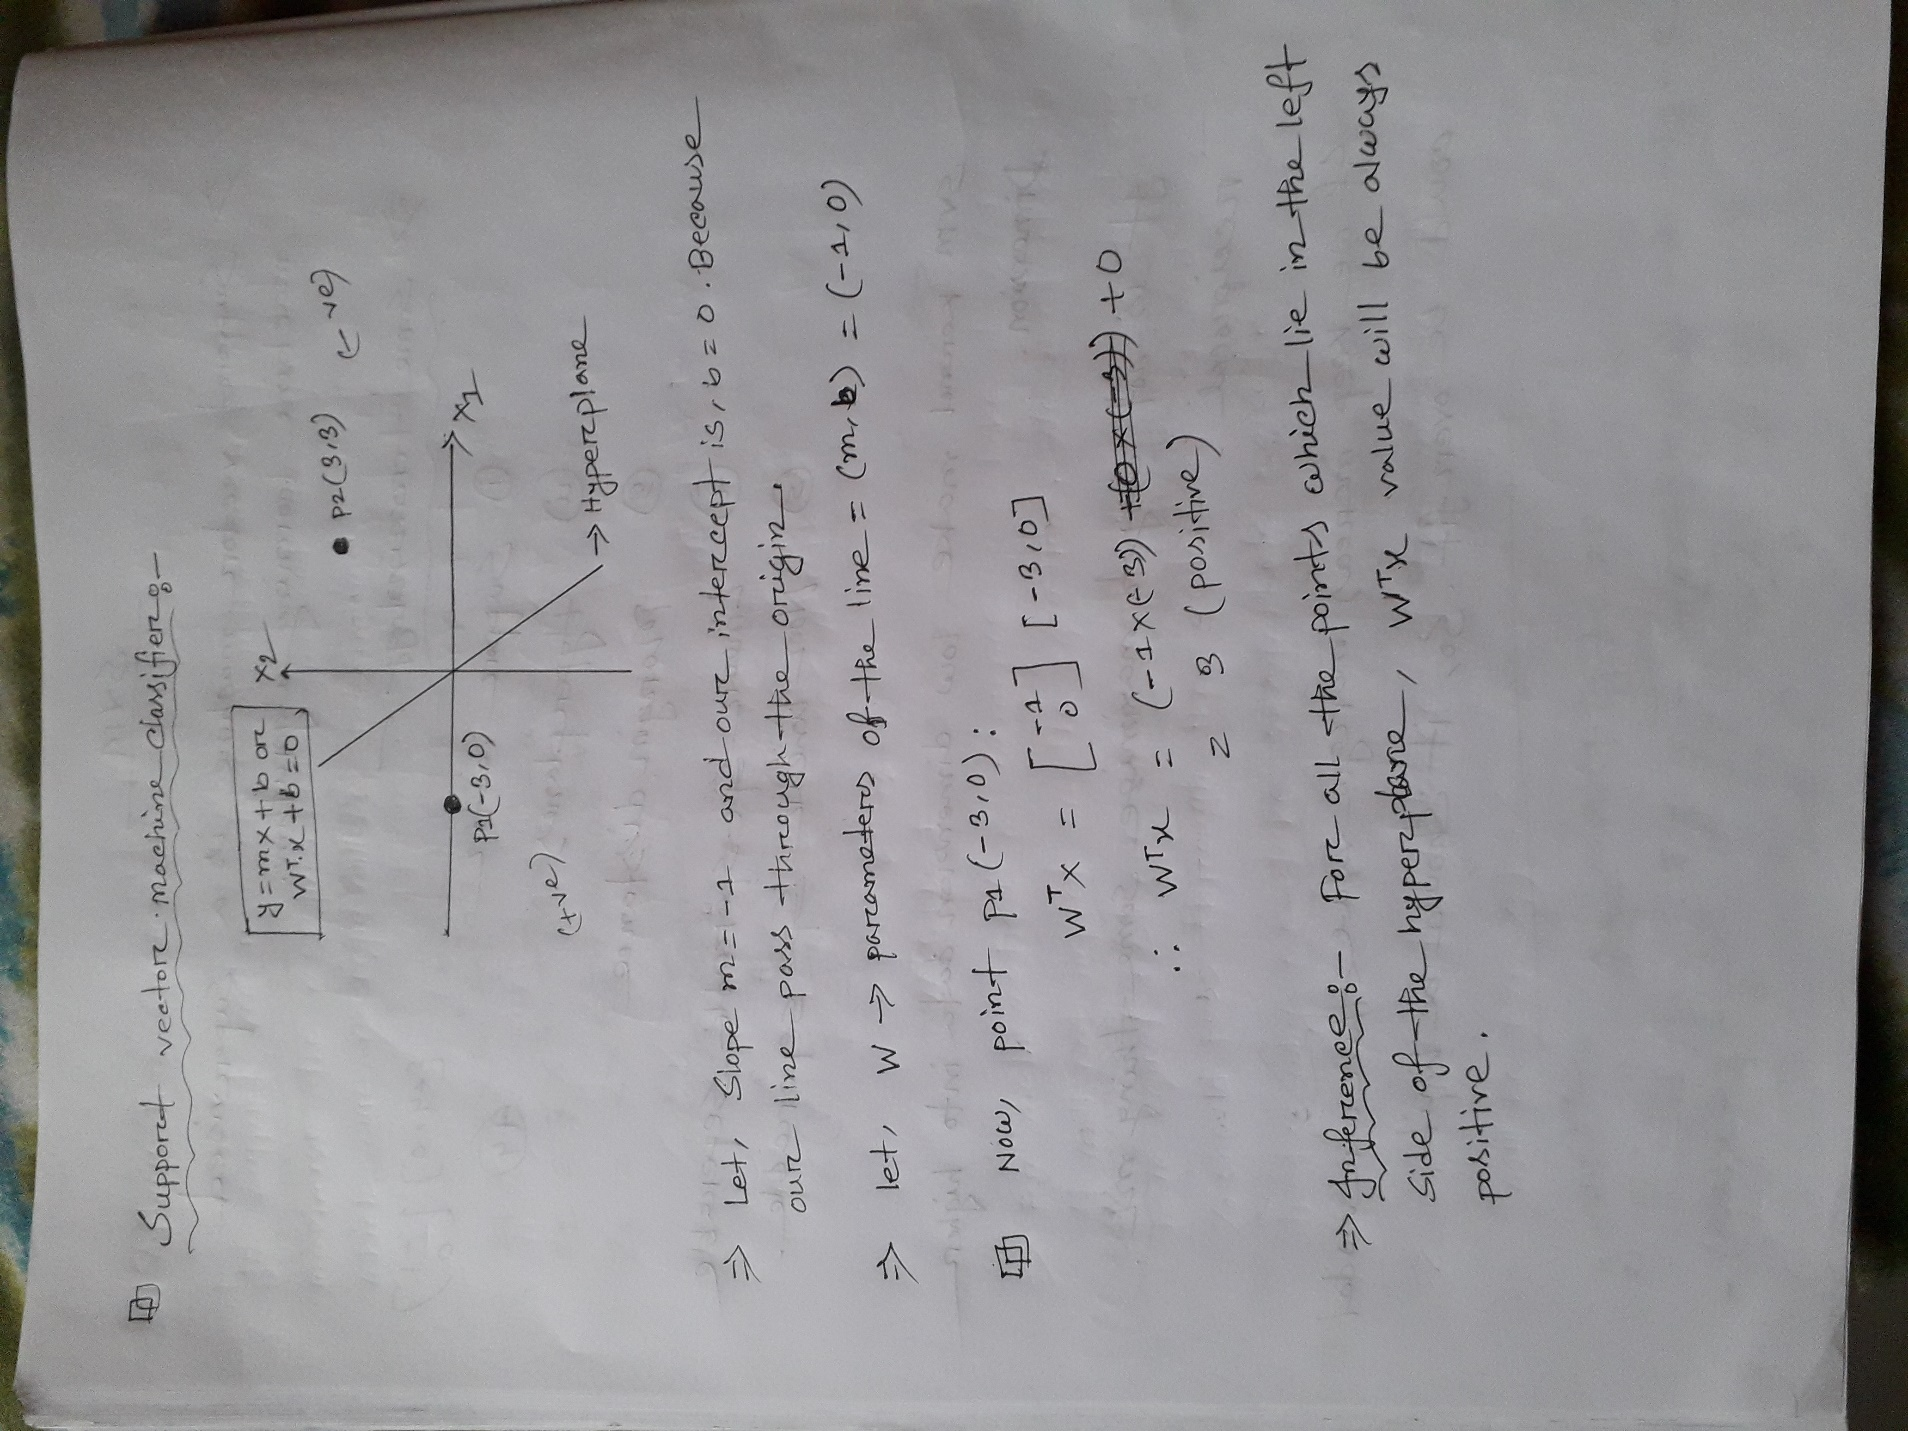 Support vector machine classifier:-
y=mx+b or
W^T.x+b=0
x2
P2(3,3)
(-ve)
P1(-3,0)
x1
(+ve)
→ Hyperplane
⇒ Let, Slope m=-1 and our intercept is, b=0. Because
our line pass through the origin.
⇒ let, W → parameters of the line = (m, b) = (-1,0)
Now, point P1(-3,0):
W^T x = [-1 0] [-3,0]
∴ W^T x = (-1x(-3)) +(0x(-3)) +0
= 3 (positive)
⇒ Inference:- For all the points which lie in the left
side of the hyperplane, W^T x value will be always
positive.